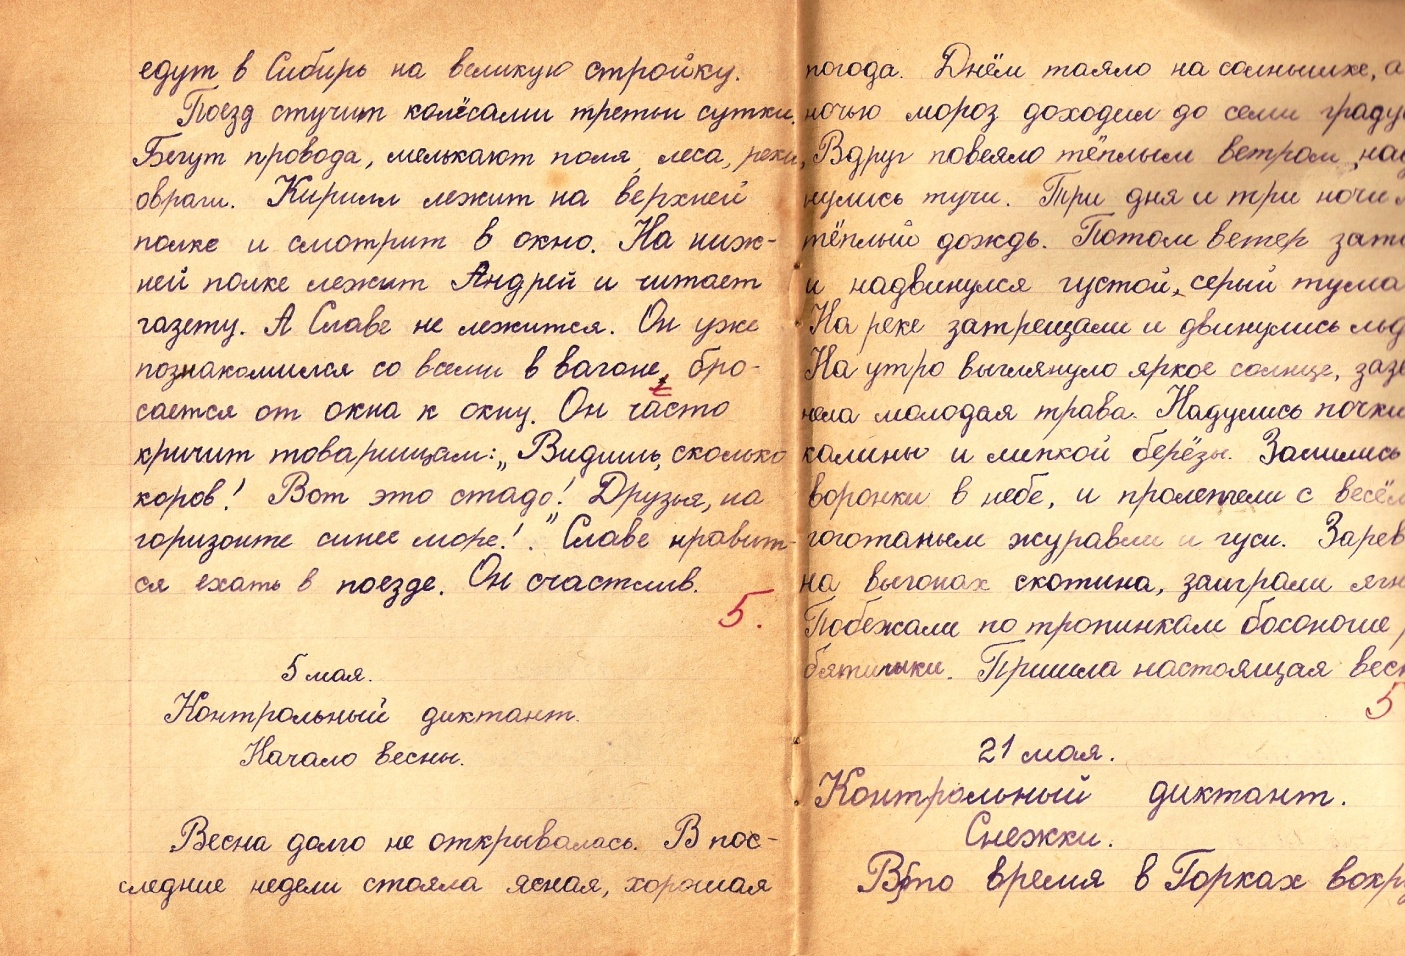 едут в Сибирь на великую стройку.
Поезд стучит колёсами третьи сутки.
Бегут провода, мелькают поля, леса, реки,
овраги. Кирилл лежит на верхней
полке и смотрит в окно. На ниж-
ней полке лежит Андрей и читает
газету. А Славе не лежится. Он уже
познакомился со всеми в вагоне, бро-
сается от окна к окну. Он часто
кричит товарищам: „Видишь, сколько
коров! Вот это стадо! Друзья, на
горизонте синее море!". Славе нравит-
ся ехать в поезде. Он счастлив.
5.
5 мая.
Контрольный диктант.
Начало весны.
Весна долго не открывалась. В пос-
следние недели стояла ясная, хорошая
погода. Днём таяло на солнышке, а
ночью мороз доходил до семи граду
Вдруг повеяло тёплым ветром, над
нулись тучи. Три дня и три ночи л
тёплый дождь. Потом ветер зати
и надвинулся густой, серый тума
На реке затрещали и двинулись льд
На утро выглянуло яркое солнце, заз
нела молодая трава. Надулись почки
калины и липкой берёзы. Залились
воронки в небе, и пролетели с весёл
гоготаньем журавли и гуси. Зарев
на выгонах скотина, заиграли ягн
Побежали по тропинкам босоногие р
бятишки. Пришла настоящая весн
5
21 мая.
Контрольный диктант.
Снежки.
В то время в Горках вокру